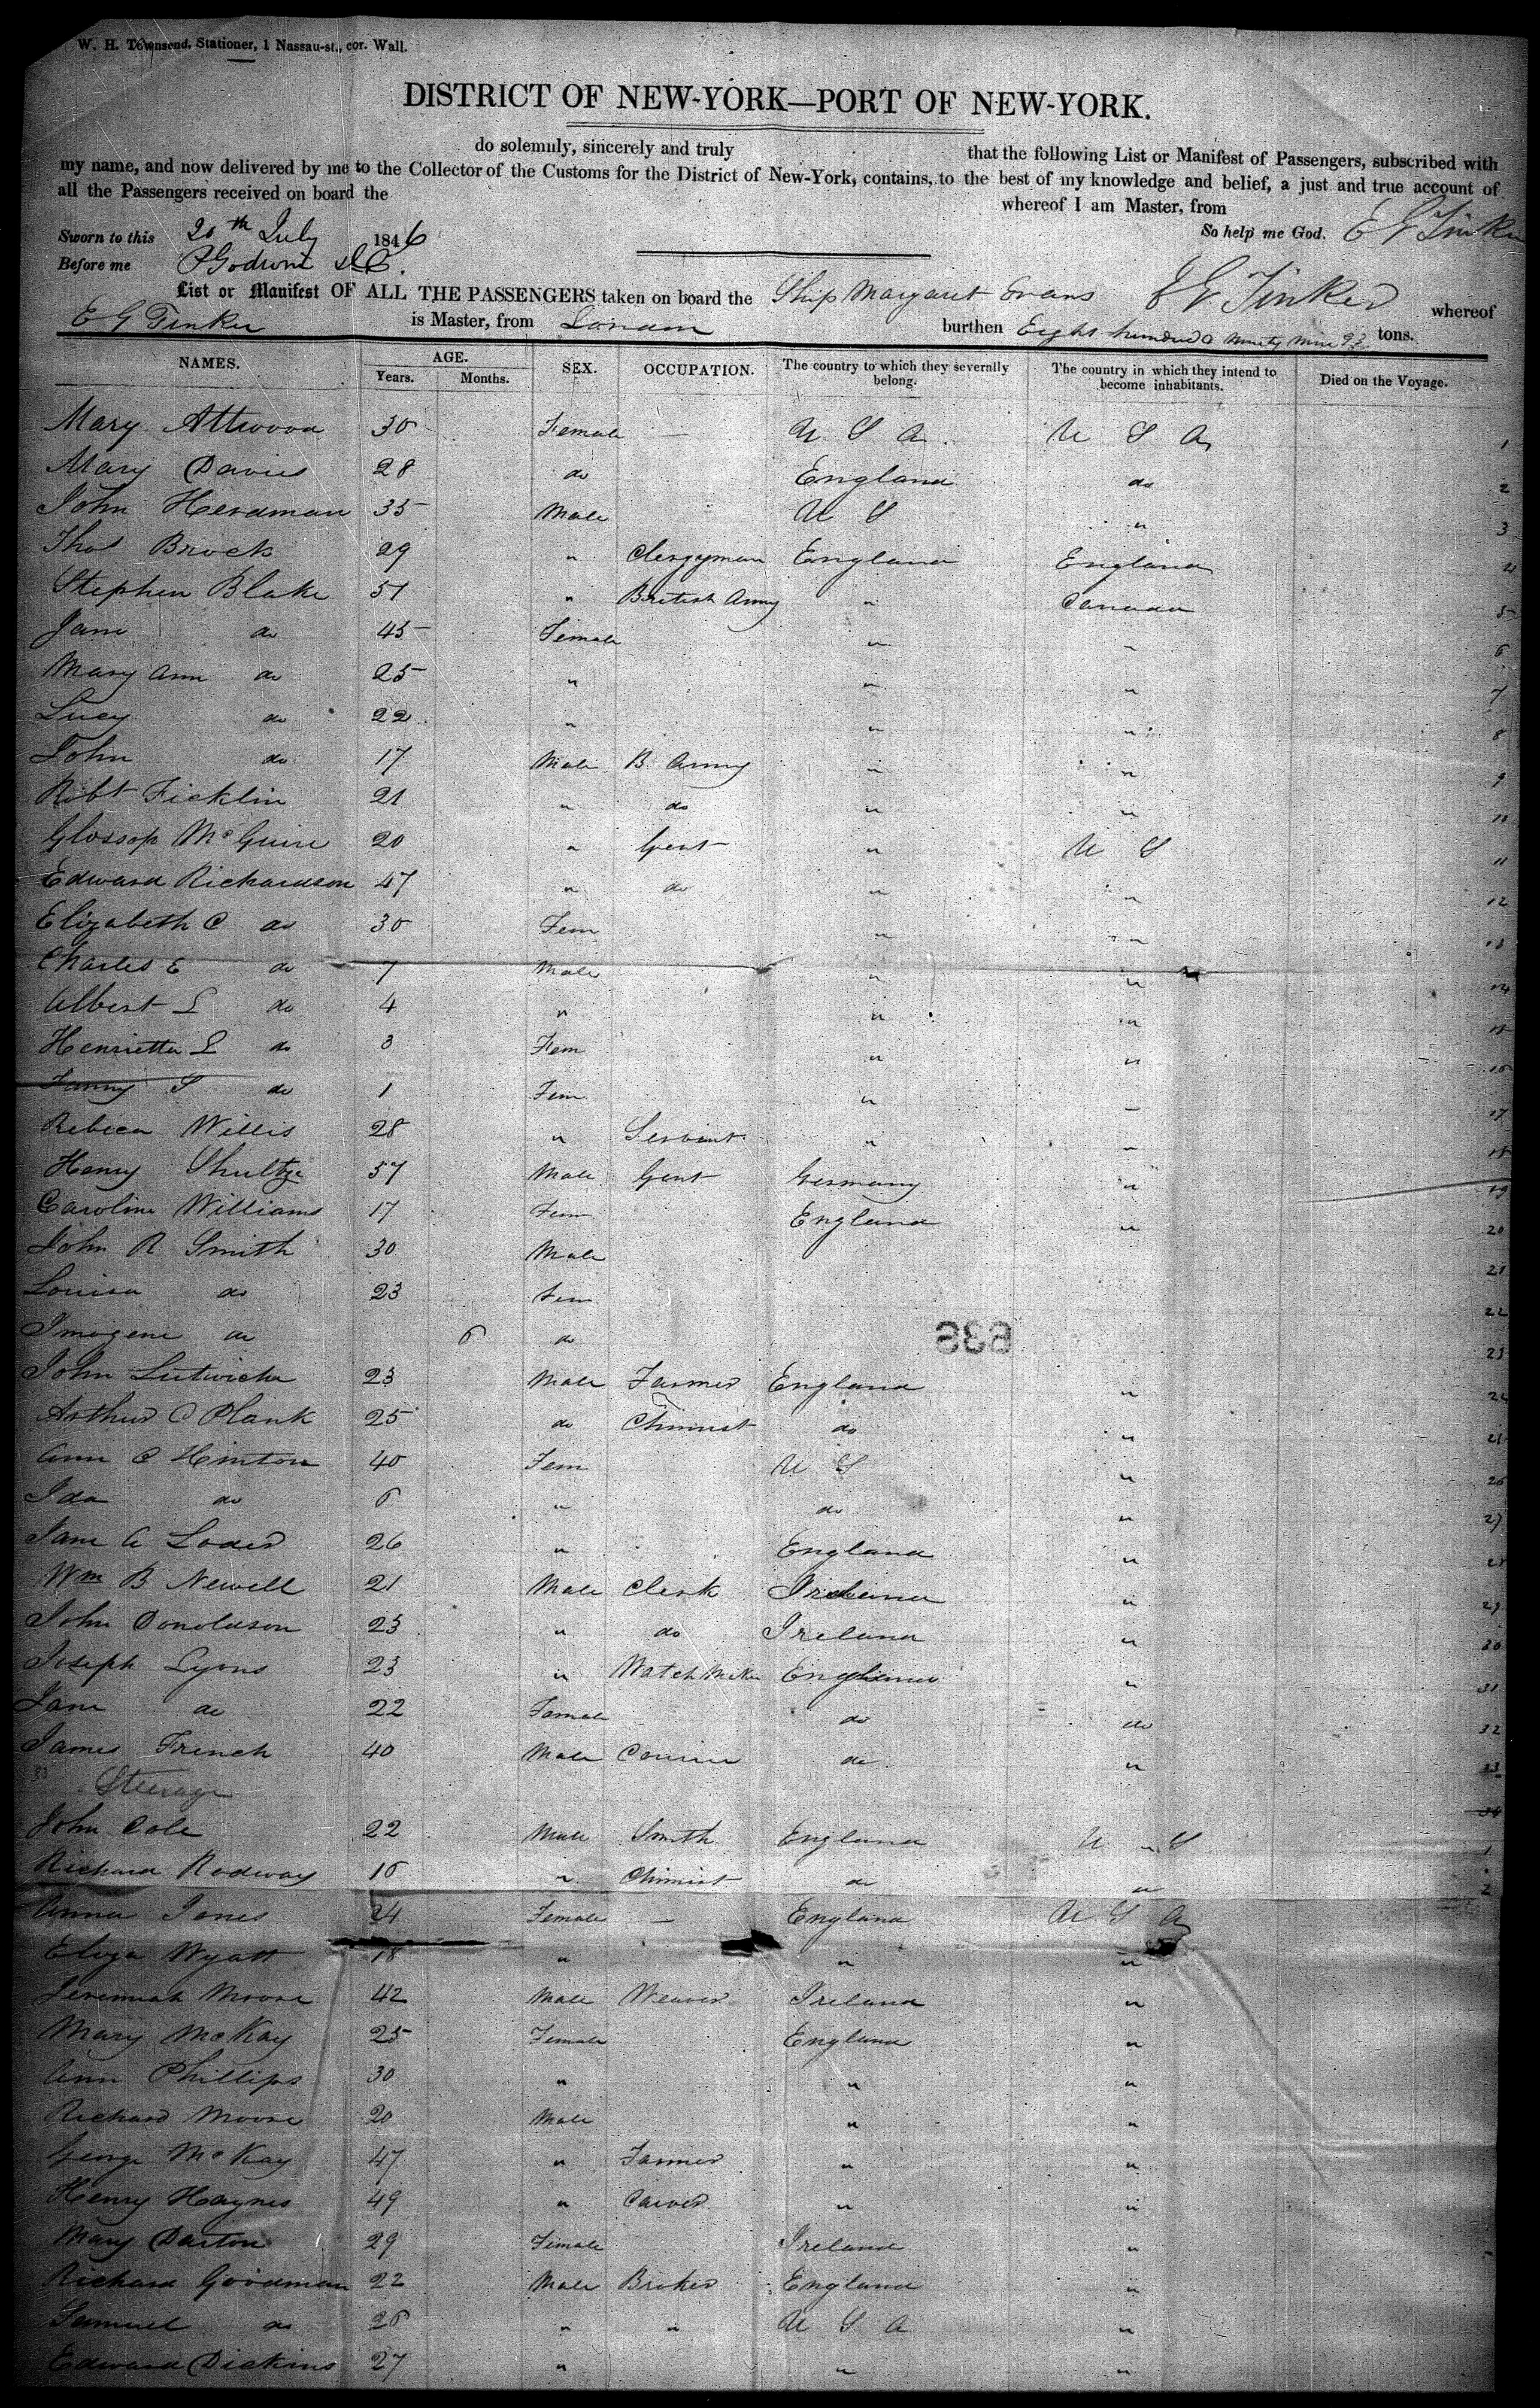 W. H. Townsend, Stationer, 1 Nassau-st., cor. Wall.
DISTRICT OF NEW-YORK—PORT OF NEW-YORK.
do solemnly, sincerely and truly that the following List or Manifest of Passengers, subscribed with
my name, and now delivered by me to the Collector of the Customs for the District of New-York, contains, to the best of my knowledge and belief, a just and true account of
all the Passengers received on board the whereof I am Master, from
Sworn to this 20th July 1846 So help me God. E G Tinker
Before me
List or Manifest OF ALL THE PASSENGERS taken on board the Ship Margaret Evans E G Tinker whereof
E G Tinker is Master, from London burthen Eight hundred & Ninety Nine tons.
NAMES. AGE. Years. Months. SEX. OCCUPATION. The country to which they severally belong. The country in which they intend to become inhabitants. Died on the Voyage.
Mary Attwood 30 Female — U S A U S A 1
Mary Davies 28 do England do 2
John Herdman 35 Male U S " 3
Thos Brock 29 " Clergyman England England 4
Stephen Blake 51 " British Army " Canada 5
Jane do 45 Female " " 6
Mary Ann do 25 " " " 7
Lucy do 22 " " " 8
John do 17 Male B. Army " " 9
Robt Ficklin 21 " do " " 10
Glossop McGuire 20 " Gent " U S 11
Edward Richardson 47 " do " " 12
Elizabeth C do 30 Fem " " 13
Charles E do 7 Male " " 14
Albert L do 4 " " " 15
Henrietta L do 3 Fem " " 16
Fanny S do 1 Fem " " 17
Rebeca Willis 28 " Servant " " 18
Henry Shultze 37 Male Gent Germany " 19
Caroline Williams 17 Fem England " 20
John R Smith 30 Male 21
Louisa do 23 Fem 22
Imogene do 6 do 23
John Lutwiche 23 Male Farmer England " 24
Arthur C Plank 25 do Chimist do " 25
Ann C Hinton 40 Fem U S " 26
Ida do 6 " do " 27
Jane A Loder 26 " England " 28
Wm B Newell 21 Male Clerk Ireland " 29
John Donoldson 23 " do Ireland " 30
Joseph Lyons 23 " Watch Maker England " 31
Jane do 22 Female do do 32
James French 40 Male do " 33
33 Steerage 34
John Cole 22 Male Smith England U S 1
Richard Rodway 16 " Chimist do " 2
Anna Jones 24 Female — England U S A
Eliza Wyatt 18 " " "
Jeremiah Moore 42 Male Weaver Ireland "
Mary McKay 25 Female England "
Ann Phillips 30 " " "
Richard Moore 20 Male " "
George McKay 47 " Farmer " "
Henry Haynes 49 " Carver " "
Mary Darton 29 Female Ireland "
Richard Goodman 22 Male Broker England "
Samuel do 26 " " U S A "
Edward Dickins 27 " " "